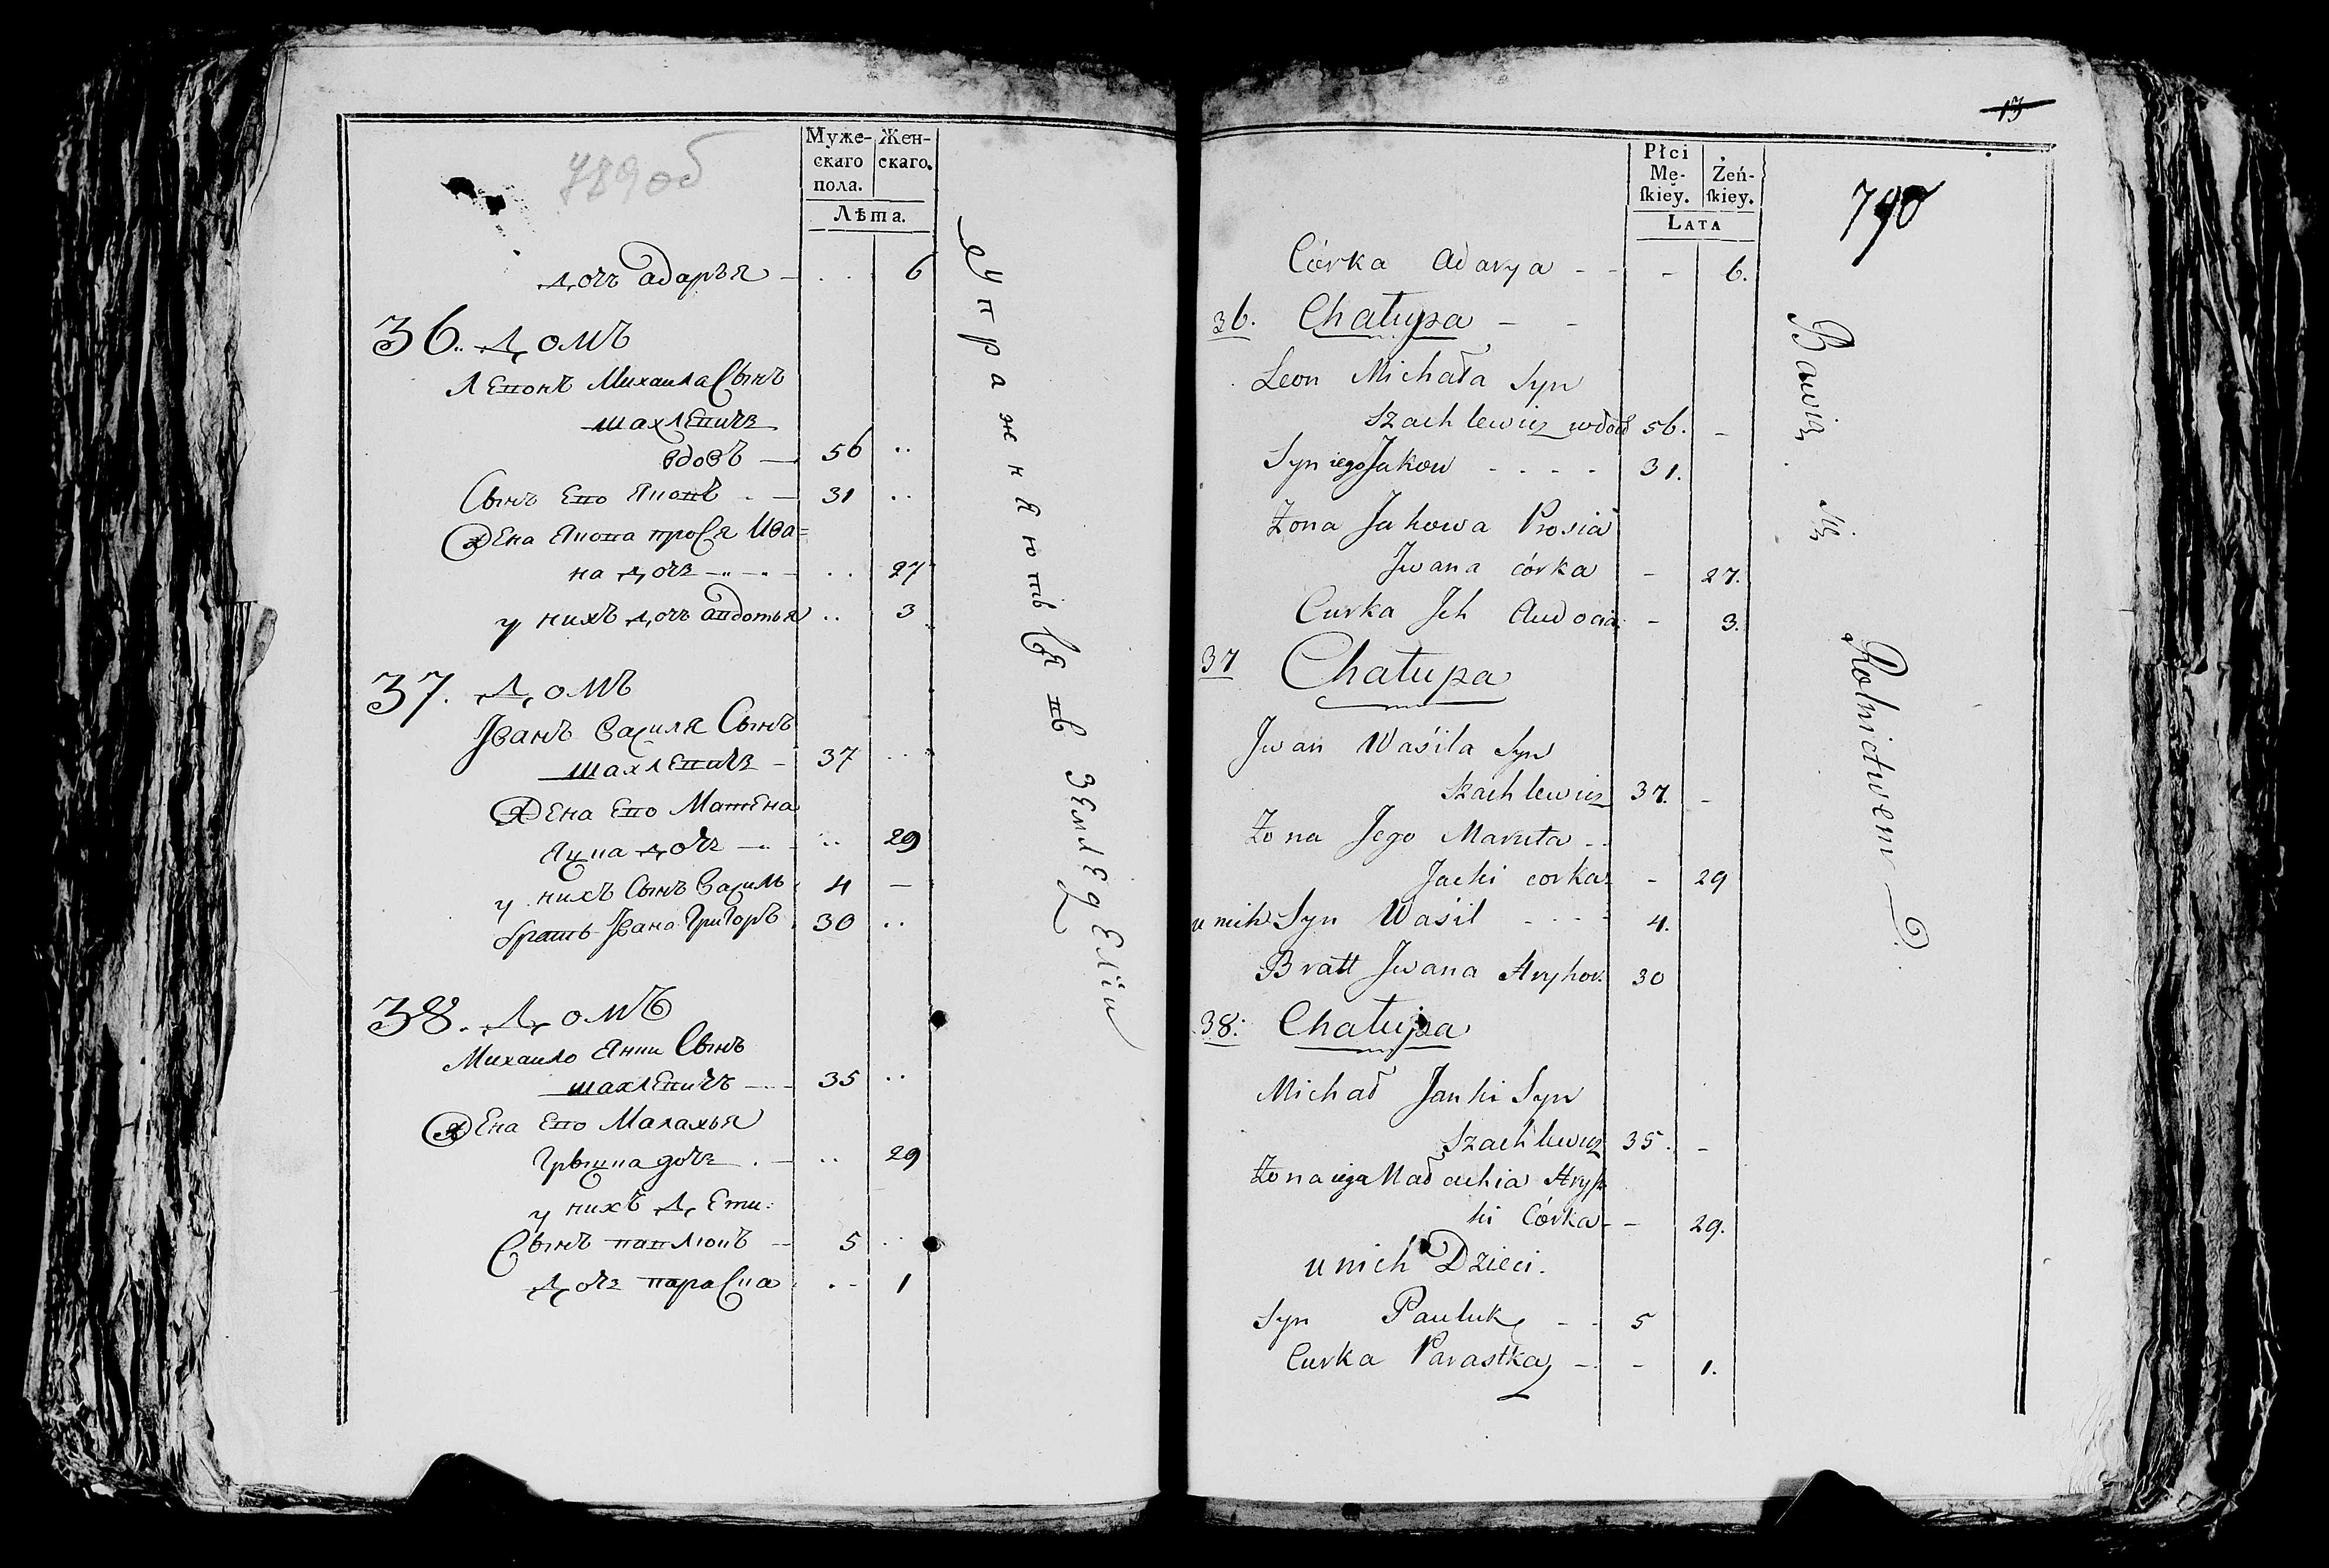 789 об
Муже-
скаго
пола.
Жен-
скаго.
Лѣта.
дочь адарья — . . 6
36. домъ
Левонъ Михаила Сынъ
шахлевичь
вдовъ — 56 ..
Сынъ Ево Яковъ . — 31 ..
Жена Якова прося Ива=
на дочь — . . 27
у нихъ дочь авдотья .. 3
37. домъ
Іванъ Василя Сынъ
шахлевичь — 37 ...
Жена Ево
Яцка дочь — .. 29
у нихъ Сынъ Василь 4 —
братъ Івана Григоръ 30 ..
38. домъ
Михаило Янки Сынъ
шахлевичъ — 35 ..
Жена Ево Малахья
Грышка дочь . — .. 29
у нихъ дети:
Сынъ павлюкъ — 5 ..
дочь параска . .. 1
упражняютъся въ земледелiи
13
790
Płci
Mę-
skiey.
Żeń-
skiey.
LATA
Córka Adarya - - - 6.
36. Chałupa - -
Leon Michała Syn
Szachlewicz wdow 56. -
Syn iego Jakow - - - - 31.
Żona Jakowa Prosia
Jwana córka - 27.
Curka Jch Audocia - 3.
37 Chałupa
Jwan Waśila Syn
Szachlewicz 37. -
Żona Jego Maruta - -
Jacki corka - - 29
u nich Syn Waśil - - - - 4.
Bratt Jwana Hryhor. 30
38: Chałupa
Michał Janki Syn
Szachlewicz 35. -
Żona iego Małachia Hrysz
ki Córka - - 29.
u nich Dzieci.
Syn Pauluk - - 5
Curka Parastka - - 1.
Bawią Się Rolnictwem